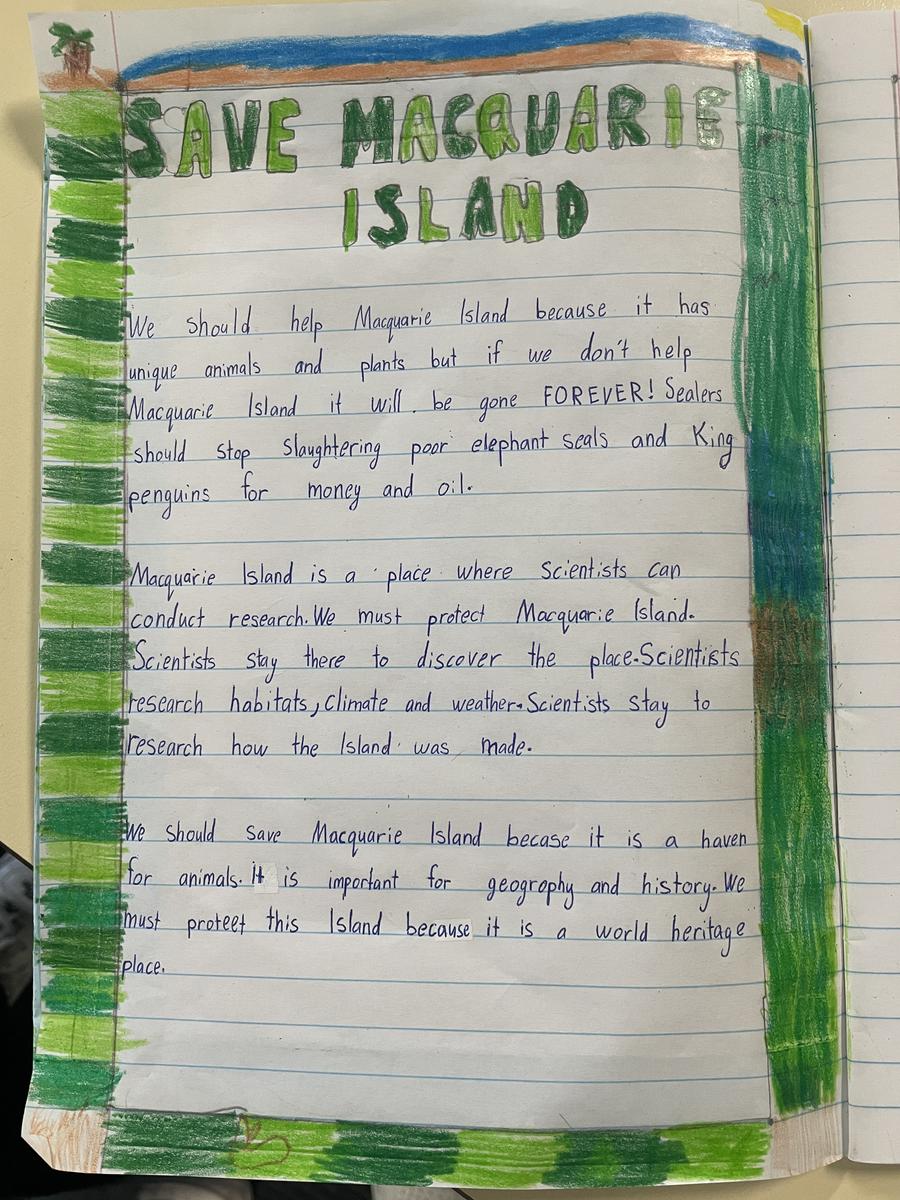 SAVE MACQUARIE
ISLAND
We should help Macquarie Island because it has
unique animals and plants but if we don't help
Macquarie Island it will be gone FOREVER! Sealers
should stop slaughtering poor elephant seals and King
penguins for money and oil.
Macquarie Island is a place where Scientists can
conduct research. We must protect Macquarie Island.
Scientists stay there to discover the place. Scientists
research habitats, climate and weather. Scientists stay to
research how the Island was made.
We should save Macquarie Island becase it is a haven
for animals. It is important for geography and history. We
must protect this Island because it is a world heritage
place.